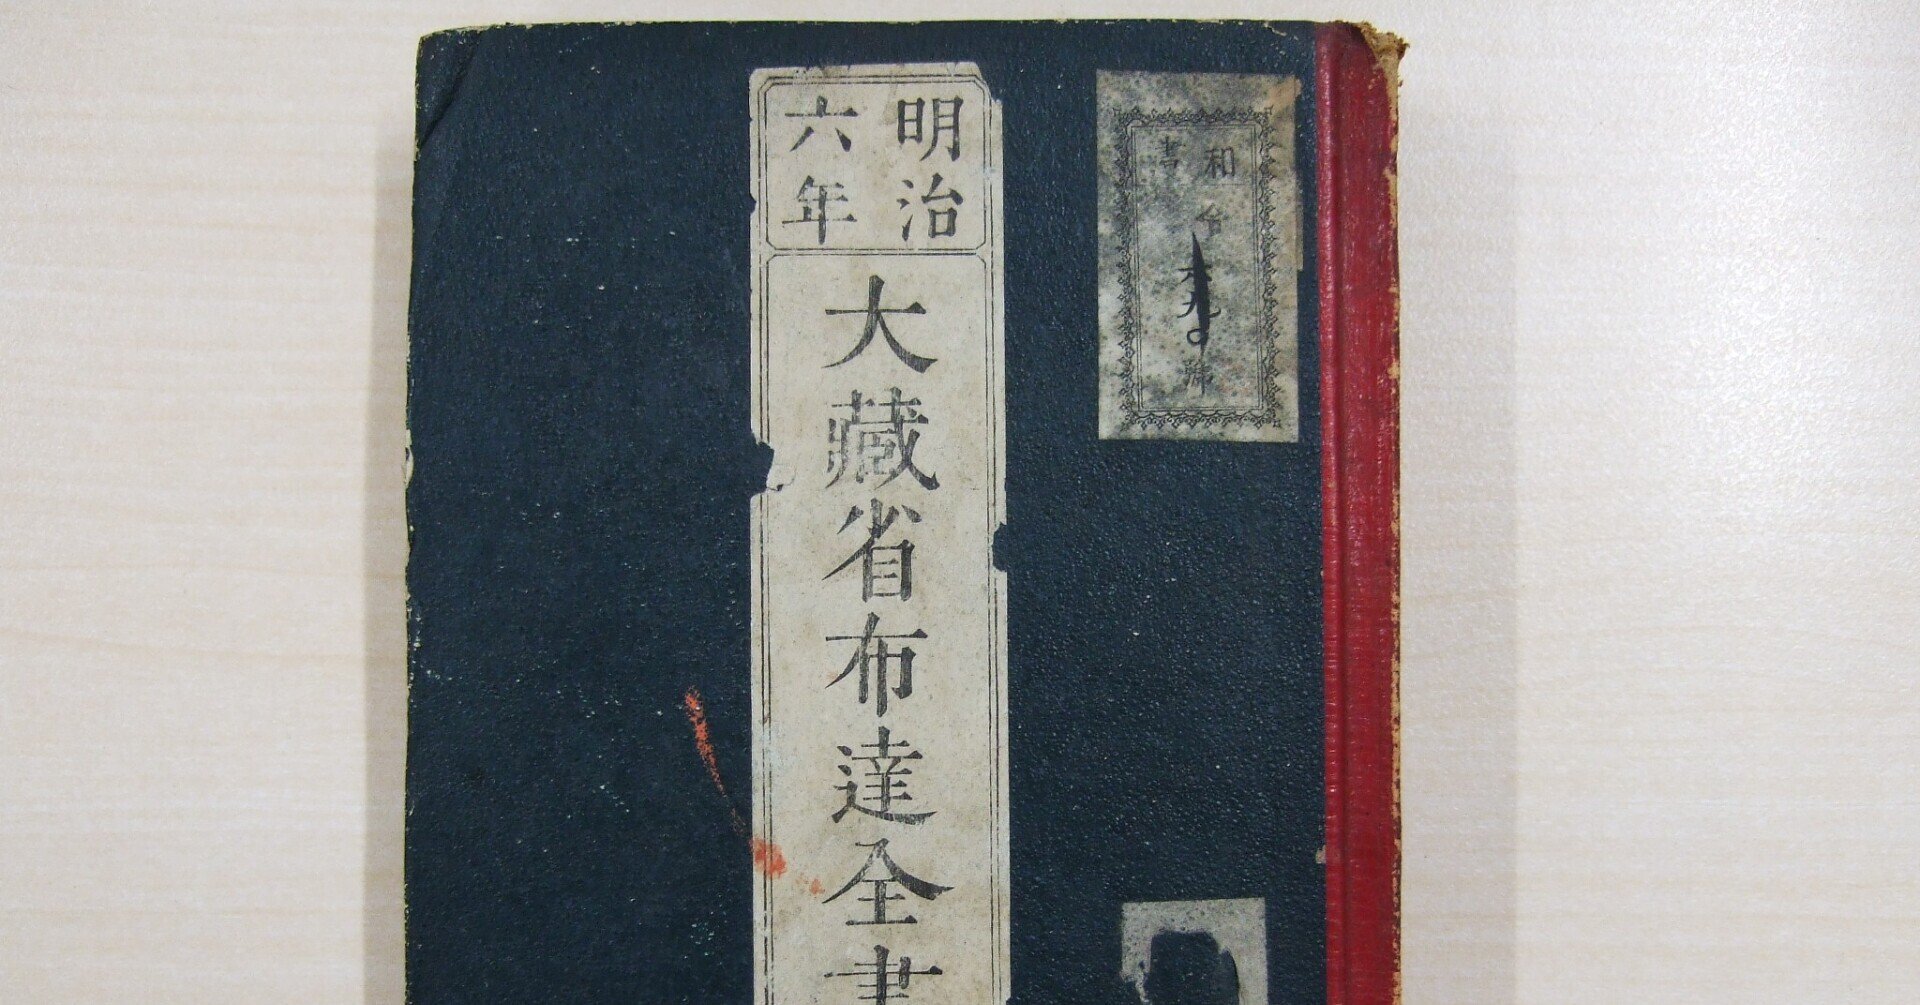 明治
六年
大藏省布達全書
和書
號